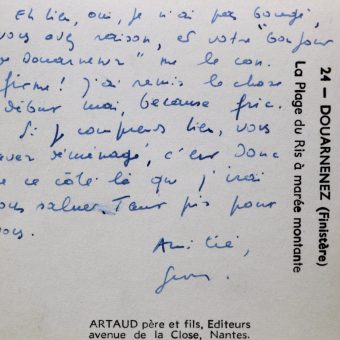 Eh bien, oui, je n'ai pas bougé,
vous avez raison, et votre "bonjour
de Douarnenez" me le con.
firme! J'ai remis la chose
début mai, because fric.
Si je comprends bien, vous
avez déménagé, c'est donc
de ce côté là que j'irai
vous saluer. Tant pis pour
vous.
Amitié,
24 — DOUARNENEZ (Finistère)
La Plage du Ris à marée montante
ARTAUD père et fils, Editeurs
avenue de la Close, Nantes.